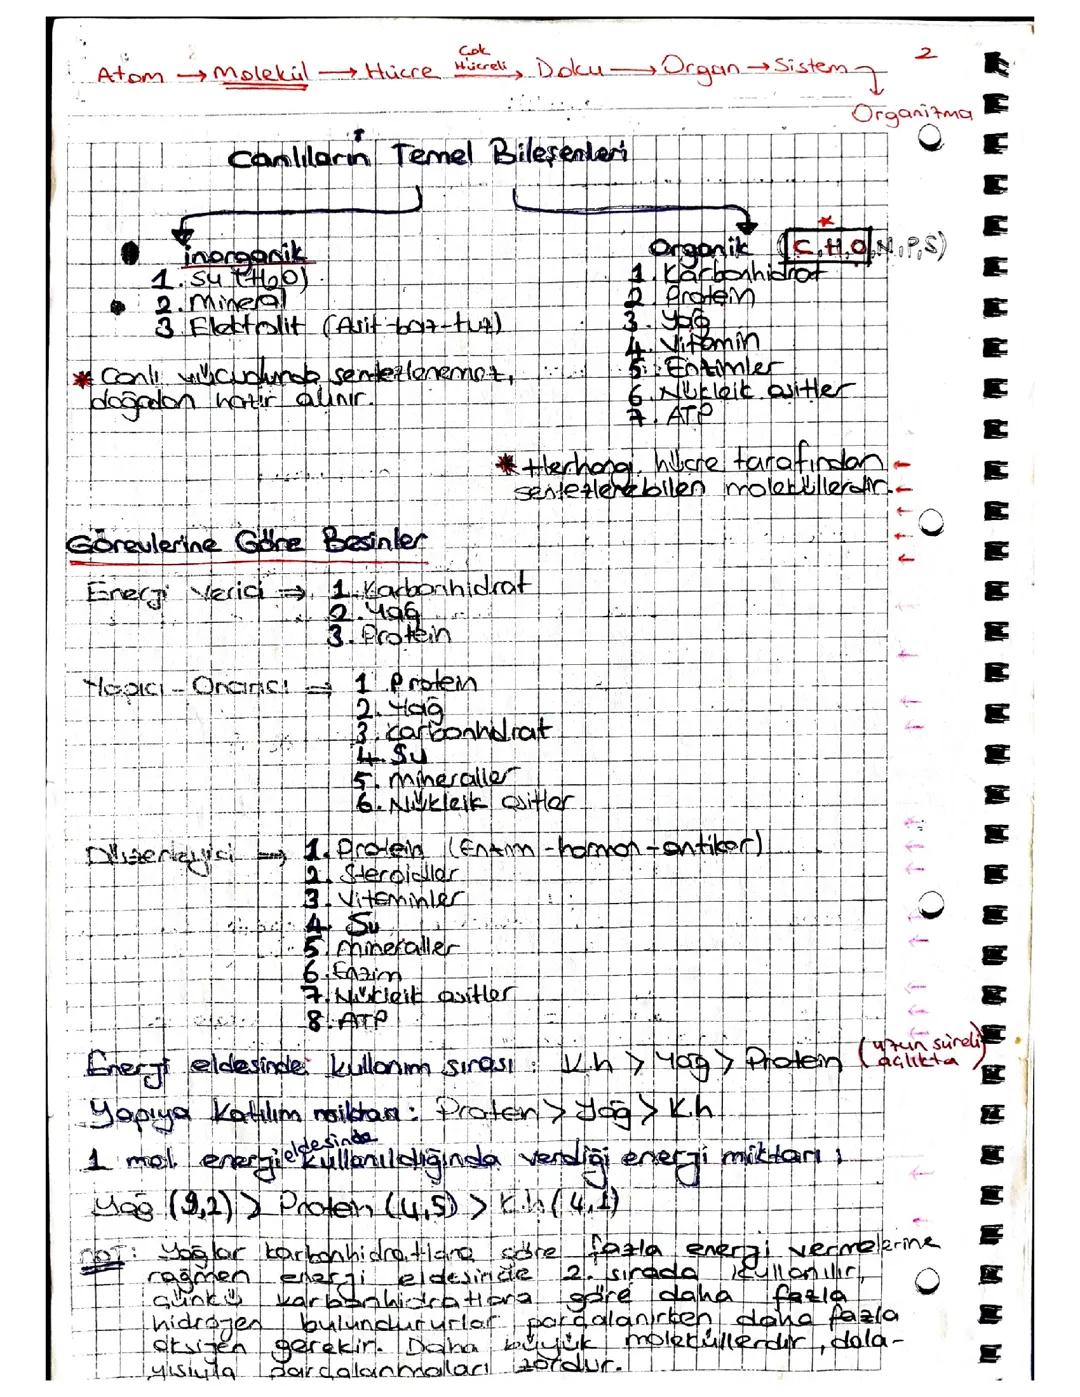 2
Atom → Molekül → Hücre Çok Hücreli → Doku → Organ → Sistem →
Organizma
Canlıların Temel Bileşenleri
inorganik
1. Su (H₂O)
2. Mineral
3. Elektrolit (Asit-baz-tuz)
* Canlı vücudunda sentezlenemez,
doğadan hazır alınır.
Organik (C,H,O,N,P,S)
1. Karbonhidrat
2. Protein
3. Yağ
4. Vitamin
5. Enzimler
6. Nükleik asitler
7. ATP
* Herhangi hücre tarafından
sentezlenebilen moleküllerdir.
Görevlerine Göre Besinler
Enerji Verici ⇒ 1. Karbonhidrat
2. Yağ
3. Protein
Yapıcı - Onarıcı ⇒ 1 Protein
2. Yağ
3. karbonhidrat
4. Su
5. mineraller
6. Nükleik asitler
Düzenleyici ⇒ 1. Protein (Enzim-hormon-antikor)
2. Steroidler
3. Vitaminler
4. Su
5. mineraller
6. Enzim
7. Nükleik asitler
8. ATP
Enerji eldesinde kullanım sırası : K.h > Yağ > Protein (uzun süreli açlıkta)
Yapıya Katılım miktarı : Protein > Yağ > K.h
1 mol enerji eldesinde kullanıldığında verdiği enerji miktarı ;
Yağ (9,2) > Protein (4,5) > K.h (4,1)
NOT : Yağlar karbonhidratlara göre fazla enerji vermelerine
rağmen enerji eldesinde 2. sırada kullanılır,
Çünkü karbonhidratlara göre daha fazla
hidrojen bulundururlar parçalanırken daha fazla
oksijen gerekir. Daha büyük moleküllerdir, dola-
yısıyla parçalanmaları zordur.